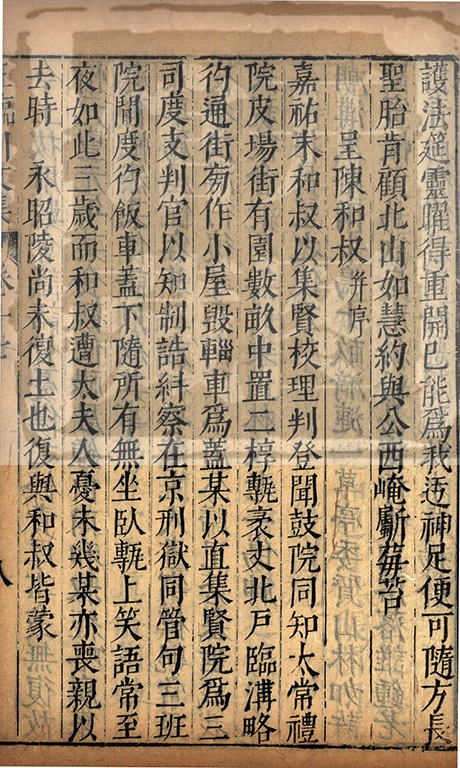 護法筵靈曜得重開已能爲我迃神足便可隨方長
聖胎肯顧北山如慧約與公西崦斸莓苔
呈陳和叔并序
嘉祐末和叔以集賢校理判登聞鼓院同知太常禮
院皮場街有園數畝中置二椁甎袤丈北戸臨溝略
彴通街旁作小屋毀輜車爲蓋某以直集賢院爲三
司度支判官以知制誥糾察在京刑獄同管句三班
院閒度彴飯車蓋下隨所有無坐臥甎上笑語常至
夜如此三歲而和叔遭太夫人憂未幾某亦喪親以
去時 永昭陵尚未復土也復與和叔皆蒙